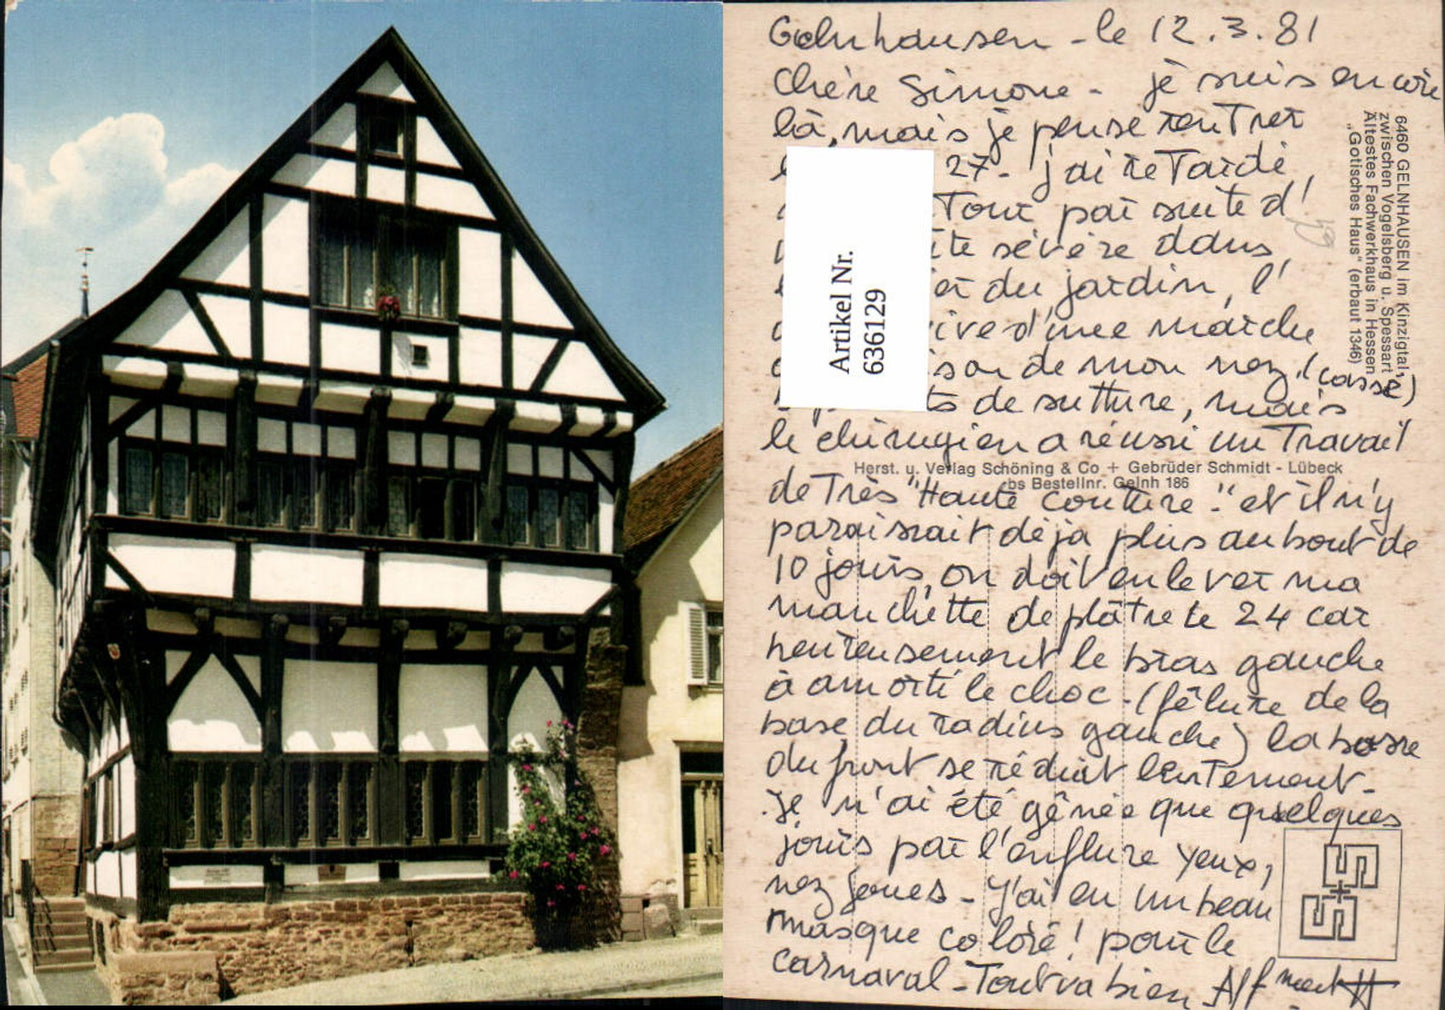 Gelnhausen - le 12.3.81
Chère Simone - je suis encore
là, mais je pense rentrer
27 - j'ai retardé,
Tour par suite d'
ite sévère dans
er du jardin, l'
ive d'une marche
son de mon nez, (cassé)
ts de suture, mais
le chirurgien a réussi un Travail
de Très "Haute couture." et il n'y
paraissait déjà plus au bout de
10 jours, on doit enlever ma
manchette de plâtre le 24 car
heureusement le bras gauche
a amorti le choc - (fêlure de la
base du radius gauche) la bosse
du front se réduit lentement -
Je n'ai été gênée que quelques
jours par l'enflure yeux,
nez joues - J'ai eu un beau
masque coloré ! pour le
carnaval - Tout va bien Aff
6460 GELNHAUSEN im Kinzigtal,
zwischen Vogelsberg u. Spessart
Ältestes Fachwerkhaus in Hessen
„Gotisches Haus" (erbaut 1346)
Artikel Nr.
636129
Herst. u. Verlag Schöning & Co + Gebrüder Schmidt - Lübeck
bs Bestellnr. Gelnh 186